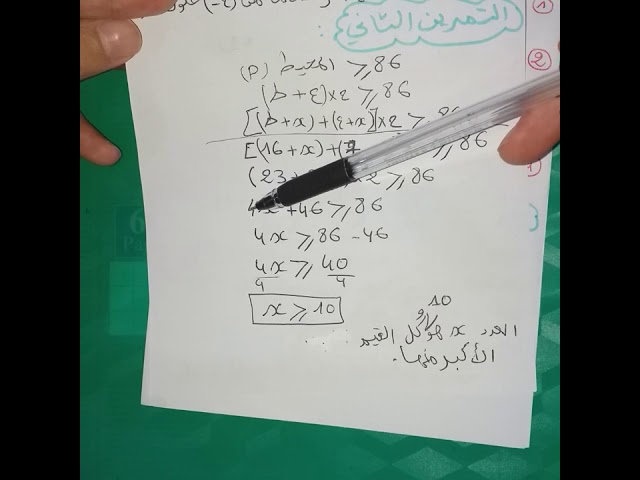 التمرين الثاني
①
②
المحيط (P) ⩾ 86
(ط + ع)×2 ⩾ 86
[(ط+x) + (ع+x)]×2 ⩾ 86
[(16+x)+(7 ⩾ 86
(23+ 2 ⩾ 86
4x +46 ⩾ 86
4x ⩾ 86 -46
4x/4 ⩾ 40/4
x ⩾ 10
10
العدد x هو كل القيم
الأكبر منها.